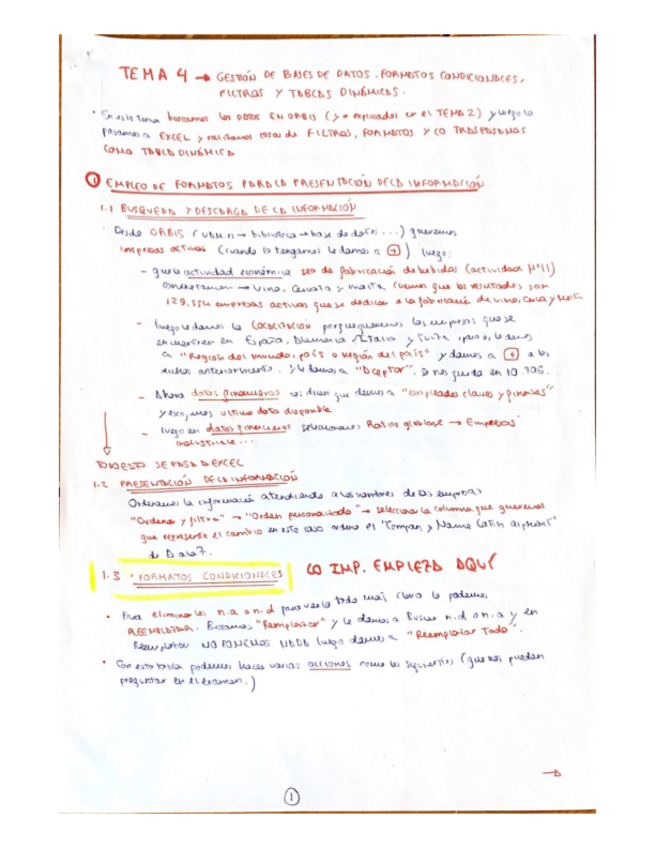 TEMA 4 → GESTIÓN DE BASES DE DATOS. FORMATOS CONDICIONALES,
FILTROS Y TABLAS DINÁMICAS.
• En este tema buscamos los datos EN ORBIS (ya explicados en el TEMA 2) y luego lo
pasamos a EXCEL y realizamos cosas de FILTROS, FORMATOS Y LO TRASPASAMOS
COMO TABLA DINÁMICA
① EMPLEO DE FORMATOS PARA LA PRESENTACIÓN DE LA INFORMACIÓN
1.1 BUSQUEDA Y DESCARGA DE LA INFORMACIÓN
· Desde ORBIS ( → biblioteca → base de datos ...) queremos
empresas activas (cuando lo tengamos le damos a +) luego:
- que la actividad económica sea de fabricación de bebidas (actividad Nº11)
concretamente → vino, cerveza y malta (vemos que los resultados son
129.554 empresas activas que se dedican a la fabricación de vino, cerveza y malta
- luego le damos la LOCALIZACIÓN porque queremos las empresas que se
encuentren en España, Alemania, Italia y Suiza, para, le damos
a "Región del mundo, país o región del país" y damos a + a los
dichos anteriormente. Y le damos a "Aceptar". Se nos queda en 10.706.
- Ahora datos financieros nos dicen que demos a "empleados claves y finanzas"
y último dato disponible
- luego en datos financieros seleccionamos Ratios globales → Empresas
industriales...
TODO ESTO SE PASA A EXCEL
1.2 PRESENTACIÓN DE LA INFORMACIÓN
Ordenamos la información atendiendo a los nombres de las empresas
"Ordenar y filtrar" → "Orden personalizado" → selecciona la columna que queremos
que represente el cambio en este caso ordeno el "Company Name Latin alphabet"
de A a la Z.
1.3 · FORMATOS CONDICIONALES LO IMP. EMPIEZA AQUÍ
• Para eliminar los n.a o n.d para verlo todo más claro lo podemos
REEMPLAZAR. Buscamos "Reemplazar" y le damos a Buscar n.d o n.a y en
Reemplazar NO PONEMOS NADA luego damos a "Reemplazar Todo".
• Con esta tabla podemos hacer varias acciones como las siguientes (que nos pueden
preguntar en el examen.)
→
1